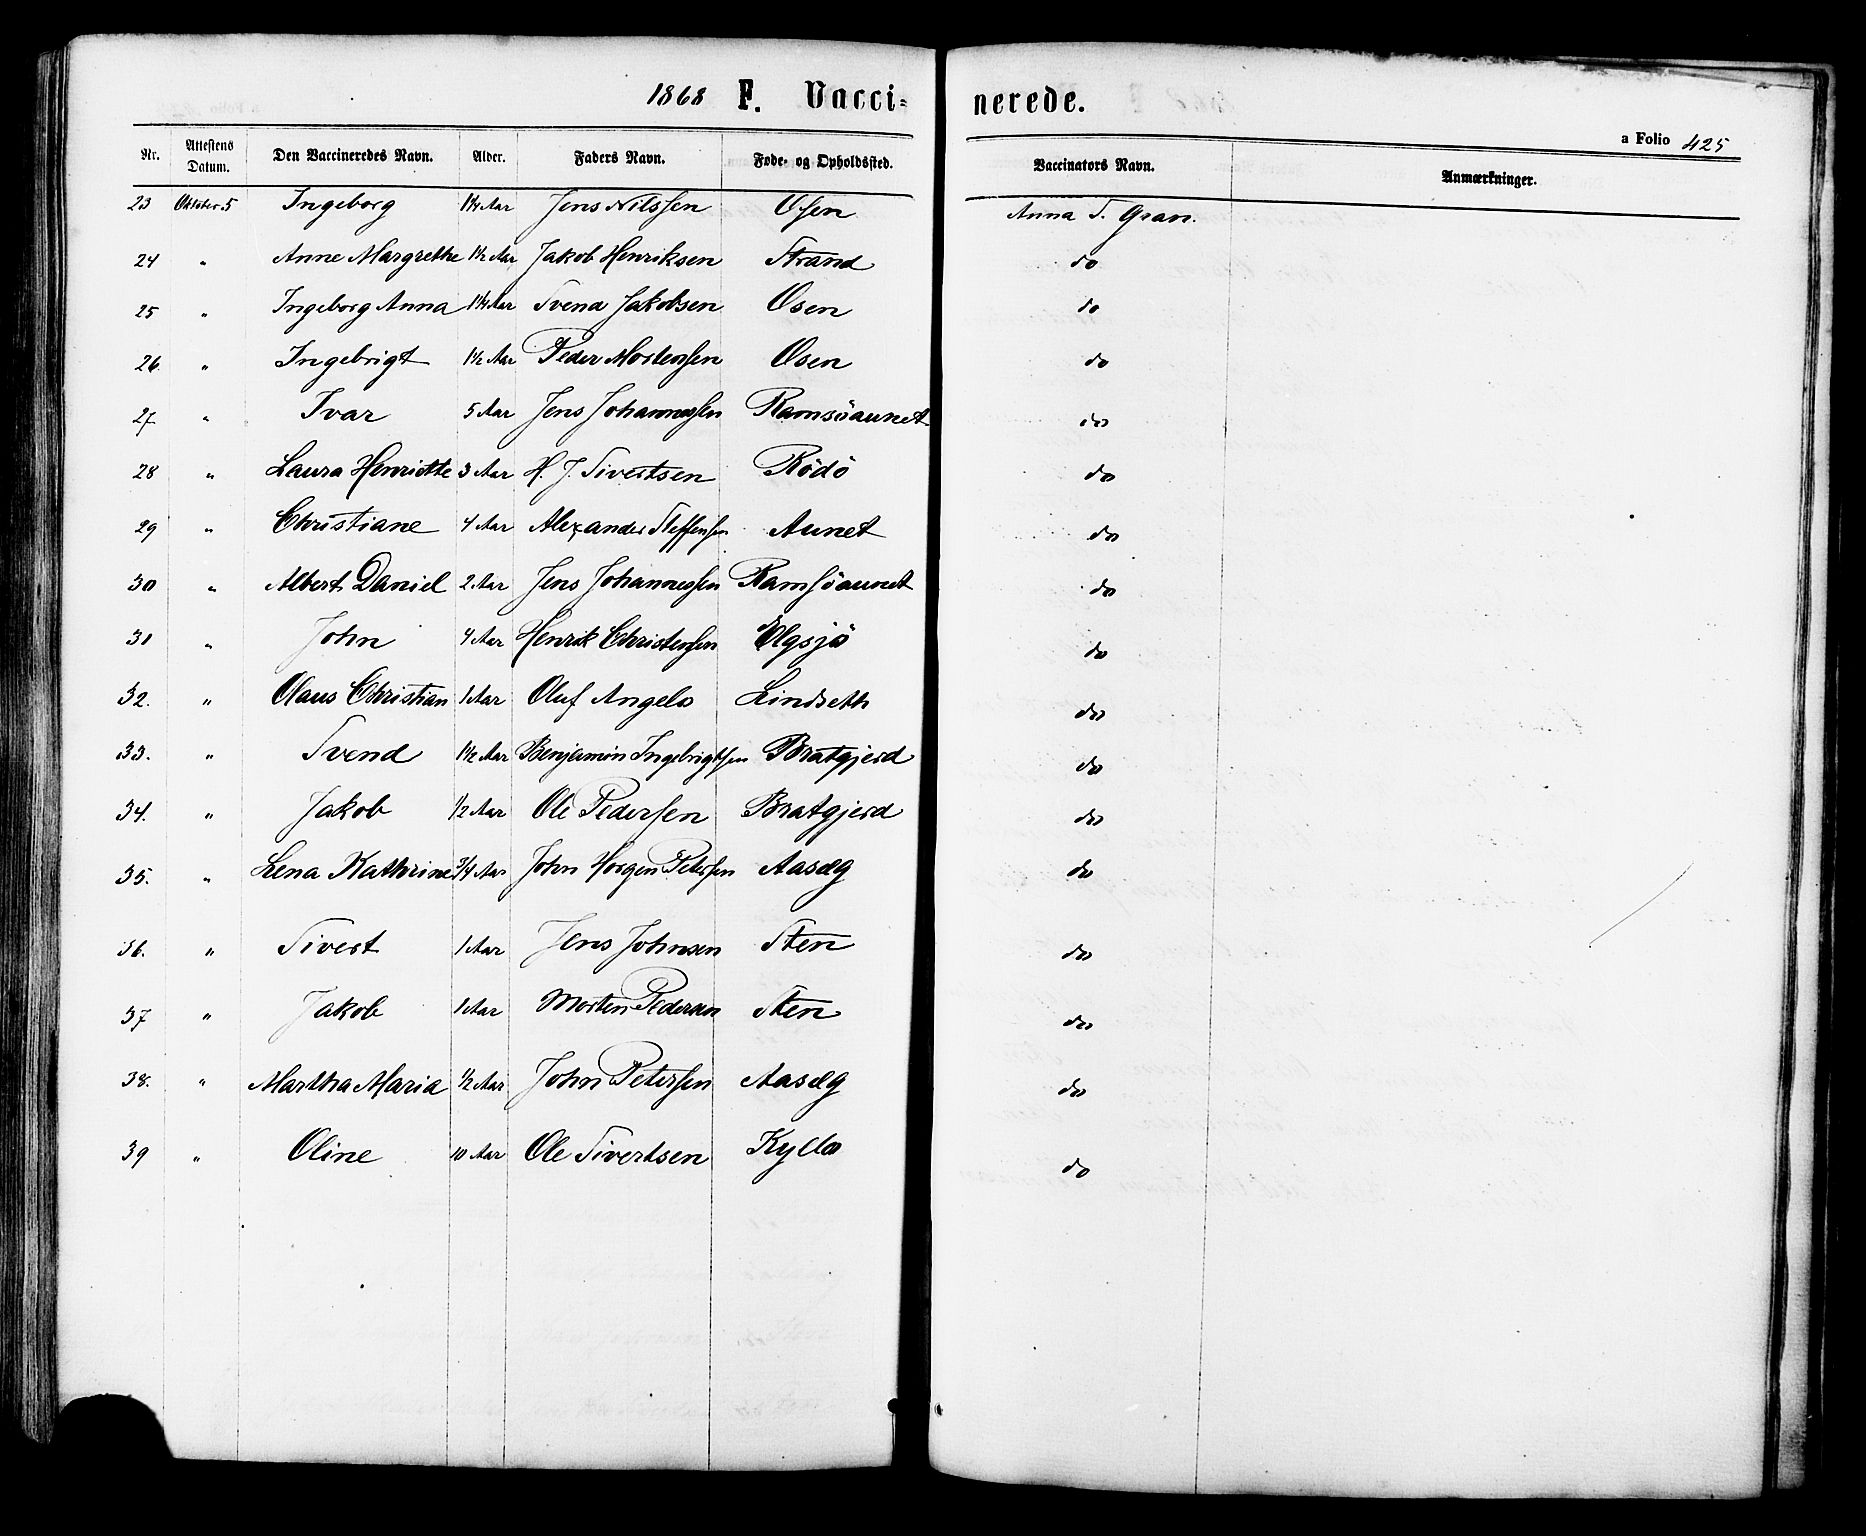 1868 F. Vacci-nerede.
a Folio 425
Nr. Attestens Datum. Den Vaccineredes Navn. Alder. Faders Navn. Føde- og Opholdssted. Vaccinators Navn. Anmærkninger.
23 Oktober 5 Ingeborg 1¼ Aar Jens Nilssen Osen Anna S. Gran.
24 " Anne Margrethe 1½ Aar Jakob Henriksen Strand do
25 " Ingeborg Anna 1¼ Aar Svend Jakobsen Osen do
26. " Ingebrigt 1½ Aar Peder Mortenssen Osen do
27 " Ivar 5 Aar Jens Johannessen Ramsöaunet do
28 " Laura Henriette 3 Aar H. J. Sivertsen Rödö do
29 " Christiane 4 Aar Alexander Steffensen Aunet do
30 " Albert Daniel 2 Aar Jens Johannessen Ramsöaunet do
31 " John 4 Aar Henrik Christensen Elgsjö do
32. " Olaus Christian 1 Aar Oluf Angelo Lindseth do
33. " Svend 1½ Aar Benjamin Ingebrigtsen Bratgjerd do
34. " Jakob ½ Aar Ole Pedersen Bratgjerd do
35. " Lena Kathrine ¾ Aar John Horgen Petersen Aasæg do
36. " Sivert 1 Aar Jens Johnsen Sten do
37 " Jakob 1 Aar Morten Pedersen Sten do
38. " Martha Maria ½ Aar John Petersen Aasæg do
39 " Oline 10 Aar Ole Sivertsen Kyllo do